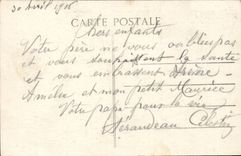 30 Avril 1906
CARTE POSTALE
Chers enfants
Votre père ne vous oublies pas
et vous souhaittant la santé
et vous embrassent
Amélie et mon petit Maurice
Votre papa pour la vie
Gérandeau